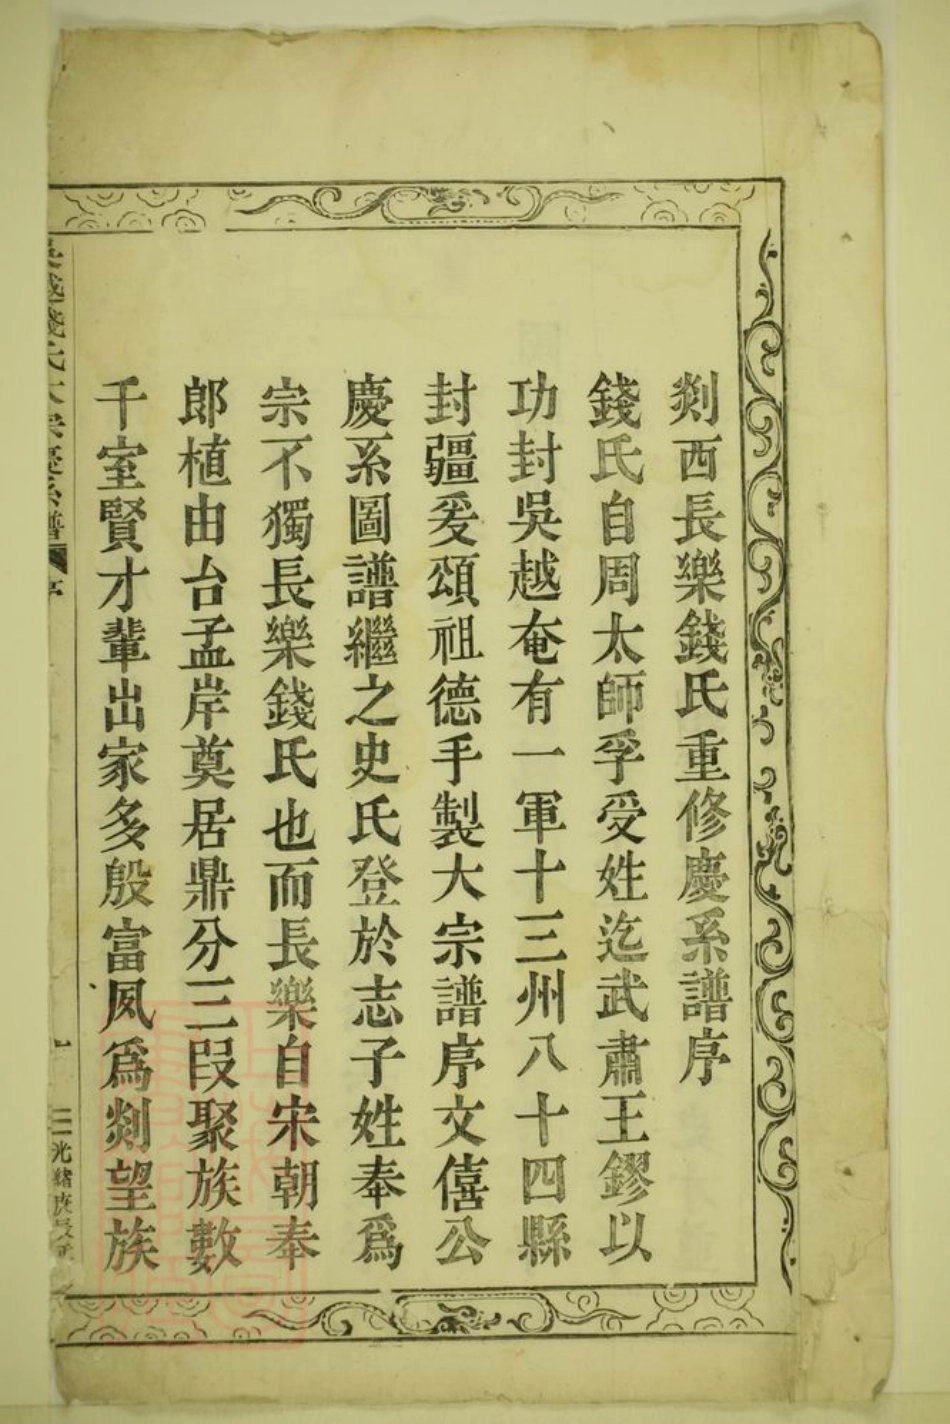 剡西長樂錢氏重修慶系譜序
錢氏自周太師孚受姓迄武肅王鏐以
功封吳越奄有一軍十三州八十四縣
封疆爰頌祖德手製大宗譜序文僖公
慶系圖譜繼之史氏登於志子姓奉爲
宗不獨長樂錢氏也而長樂自宋朝奉
郎植由台孟岸奠居鼎分三段聚族數
千室賢才輩出家多殷富夙爲剡望族
越錢氏大宗慶系譜 序 三 光緒庚辰